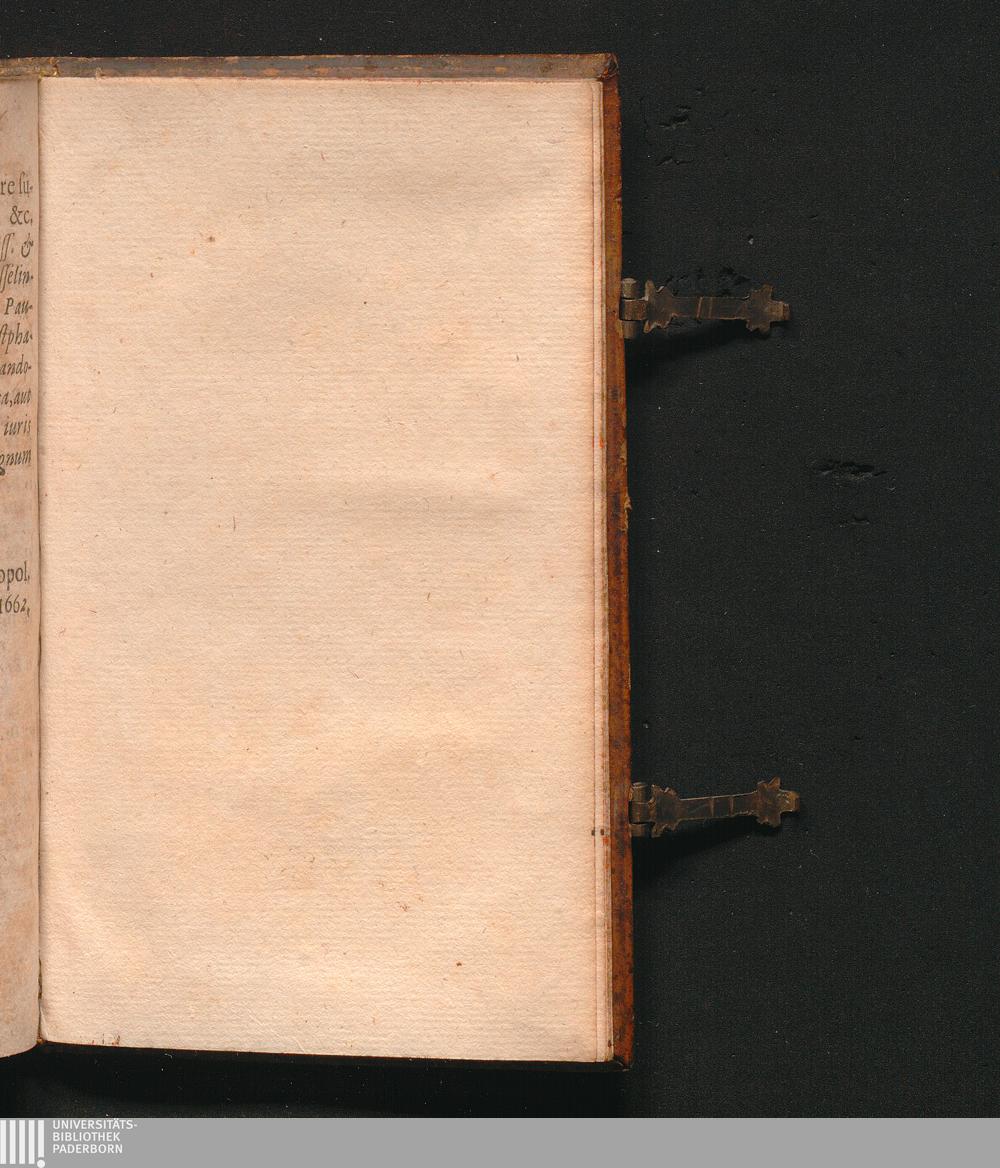 re ſu-
&c,
ſſ. &
ſſelin-
Pau-
ſtpha-
ando-
a, aut
iuris
gnum
opol,
1662,
UNIVERSITÄTS-
BIBLIOTHEK
PADERBORN